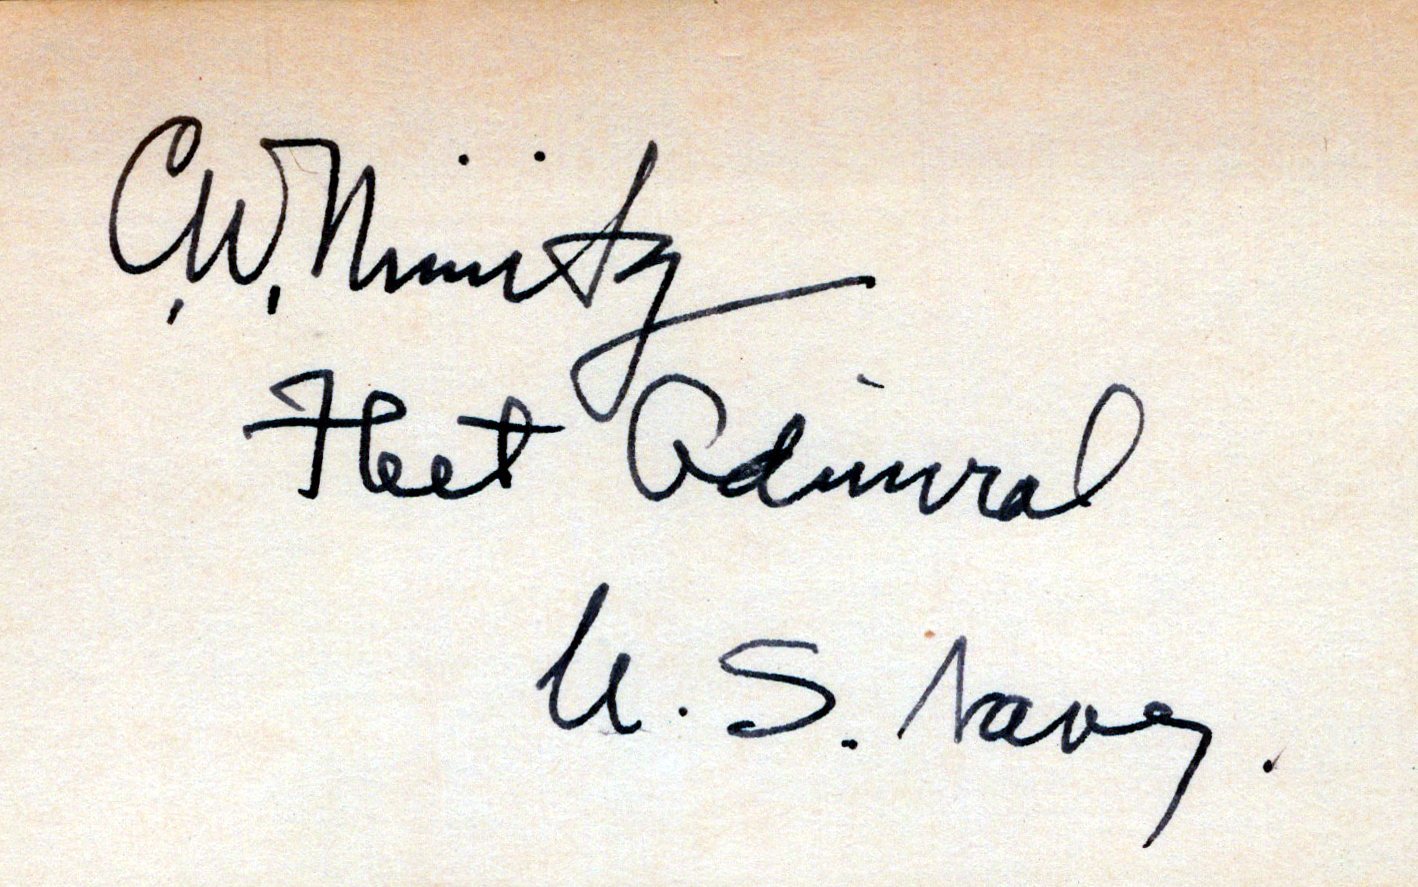 C.W. Nimitz
Fleet Admiral
U.S. Navy.